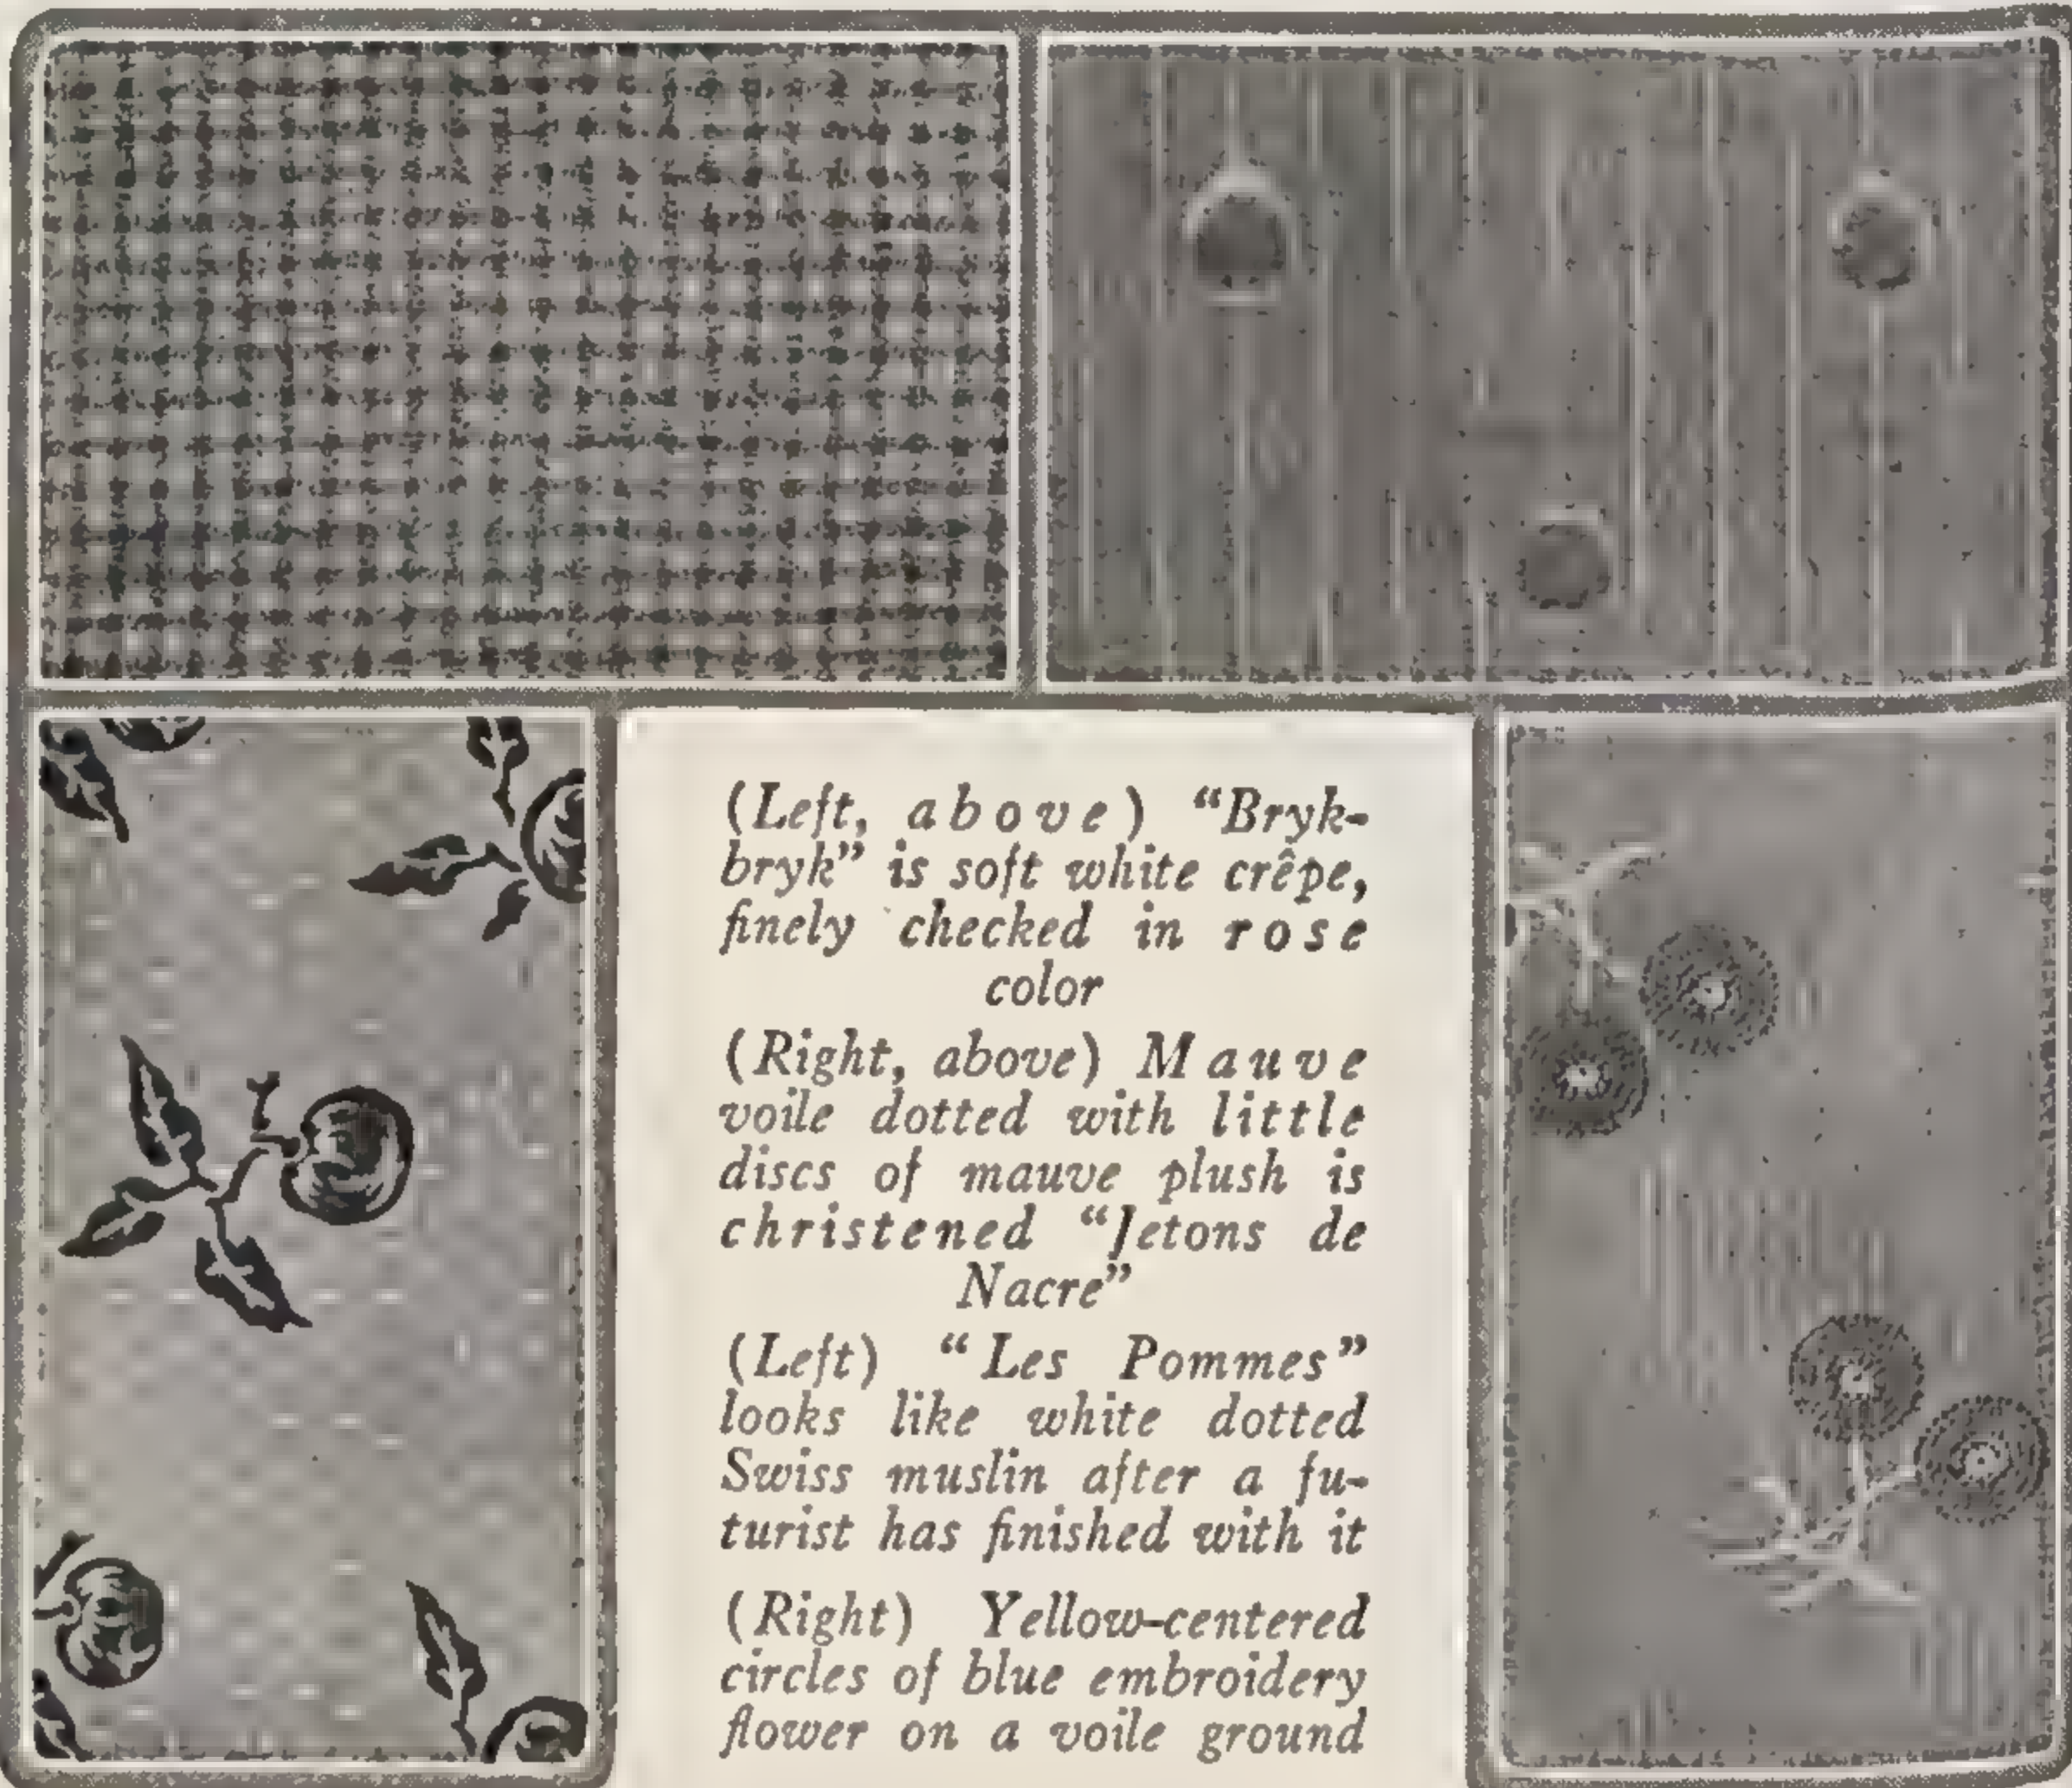 (Left, above) “Bryk-
bryk” is soft white crêpe,
finely checked in rose
color
(Right, above) Mauve
voile dotted with little
discs of mauve plush is
christened “Jetons de
Nacre”
(Left) “Les Pommes”
looks like white dotted
Swiss muslin after a fu-
turist has finished with it
(Right) Yellow-centered
circles of blue embroidery
flower on a voile ground